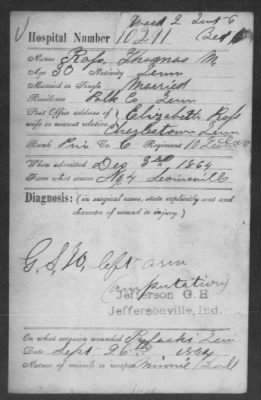 Ward 2 Tent 6
Hospital Number 10211 Bed
Name Ross, Thomas M.
Age 30 Nativity Tenn
Married or Single Married
Residence Polk Co Tenn
Post Office address of Elizabeth Ross
wife or nearest relative
Tenn
Rank Pri Co. C Regiment 10 Tenn
When admitted Dec 3rd 1864
From what source No 4 Louisville
Diagnosis: (in surgical cases, state explicitly seat and
character of wound or injury.)
G.S.W. left arm
amputation
Jefferson G.H
Jeffersonville, Ind.
On what occasion wounded Pulaski Ten
Date Sept 26th 1864
Nature of missile or weapon Minnie Ball